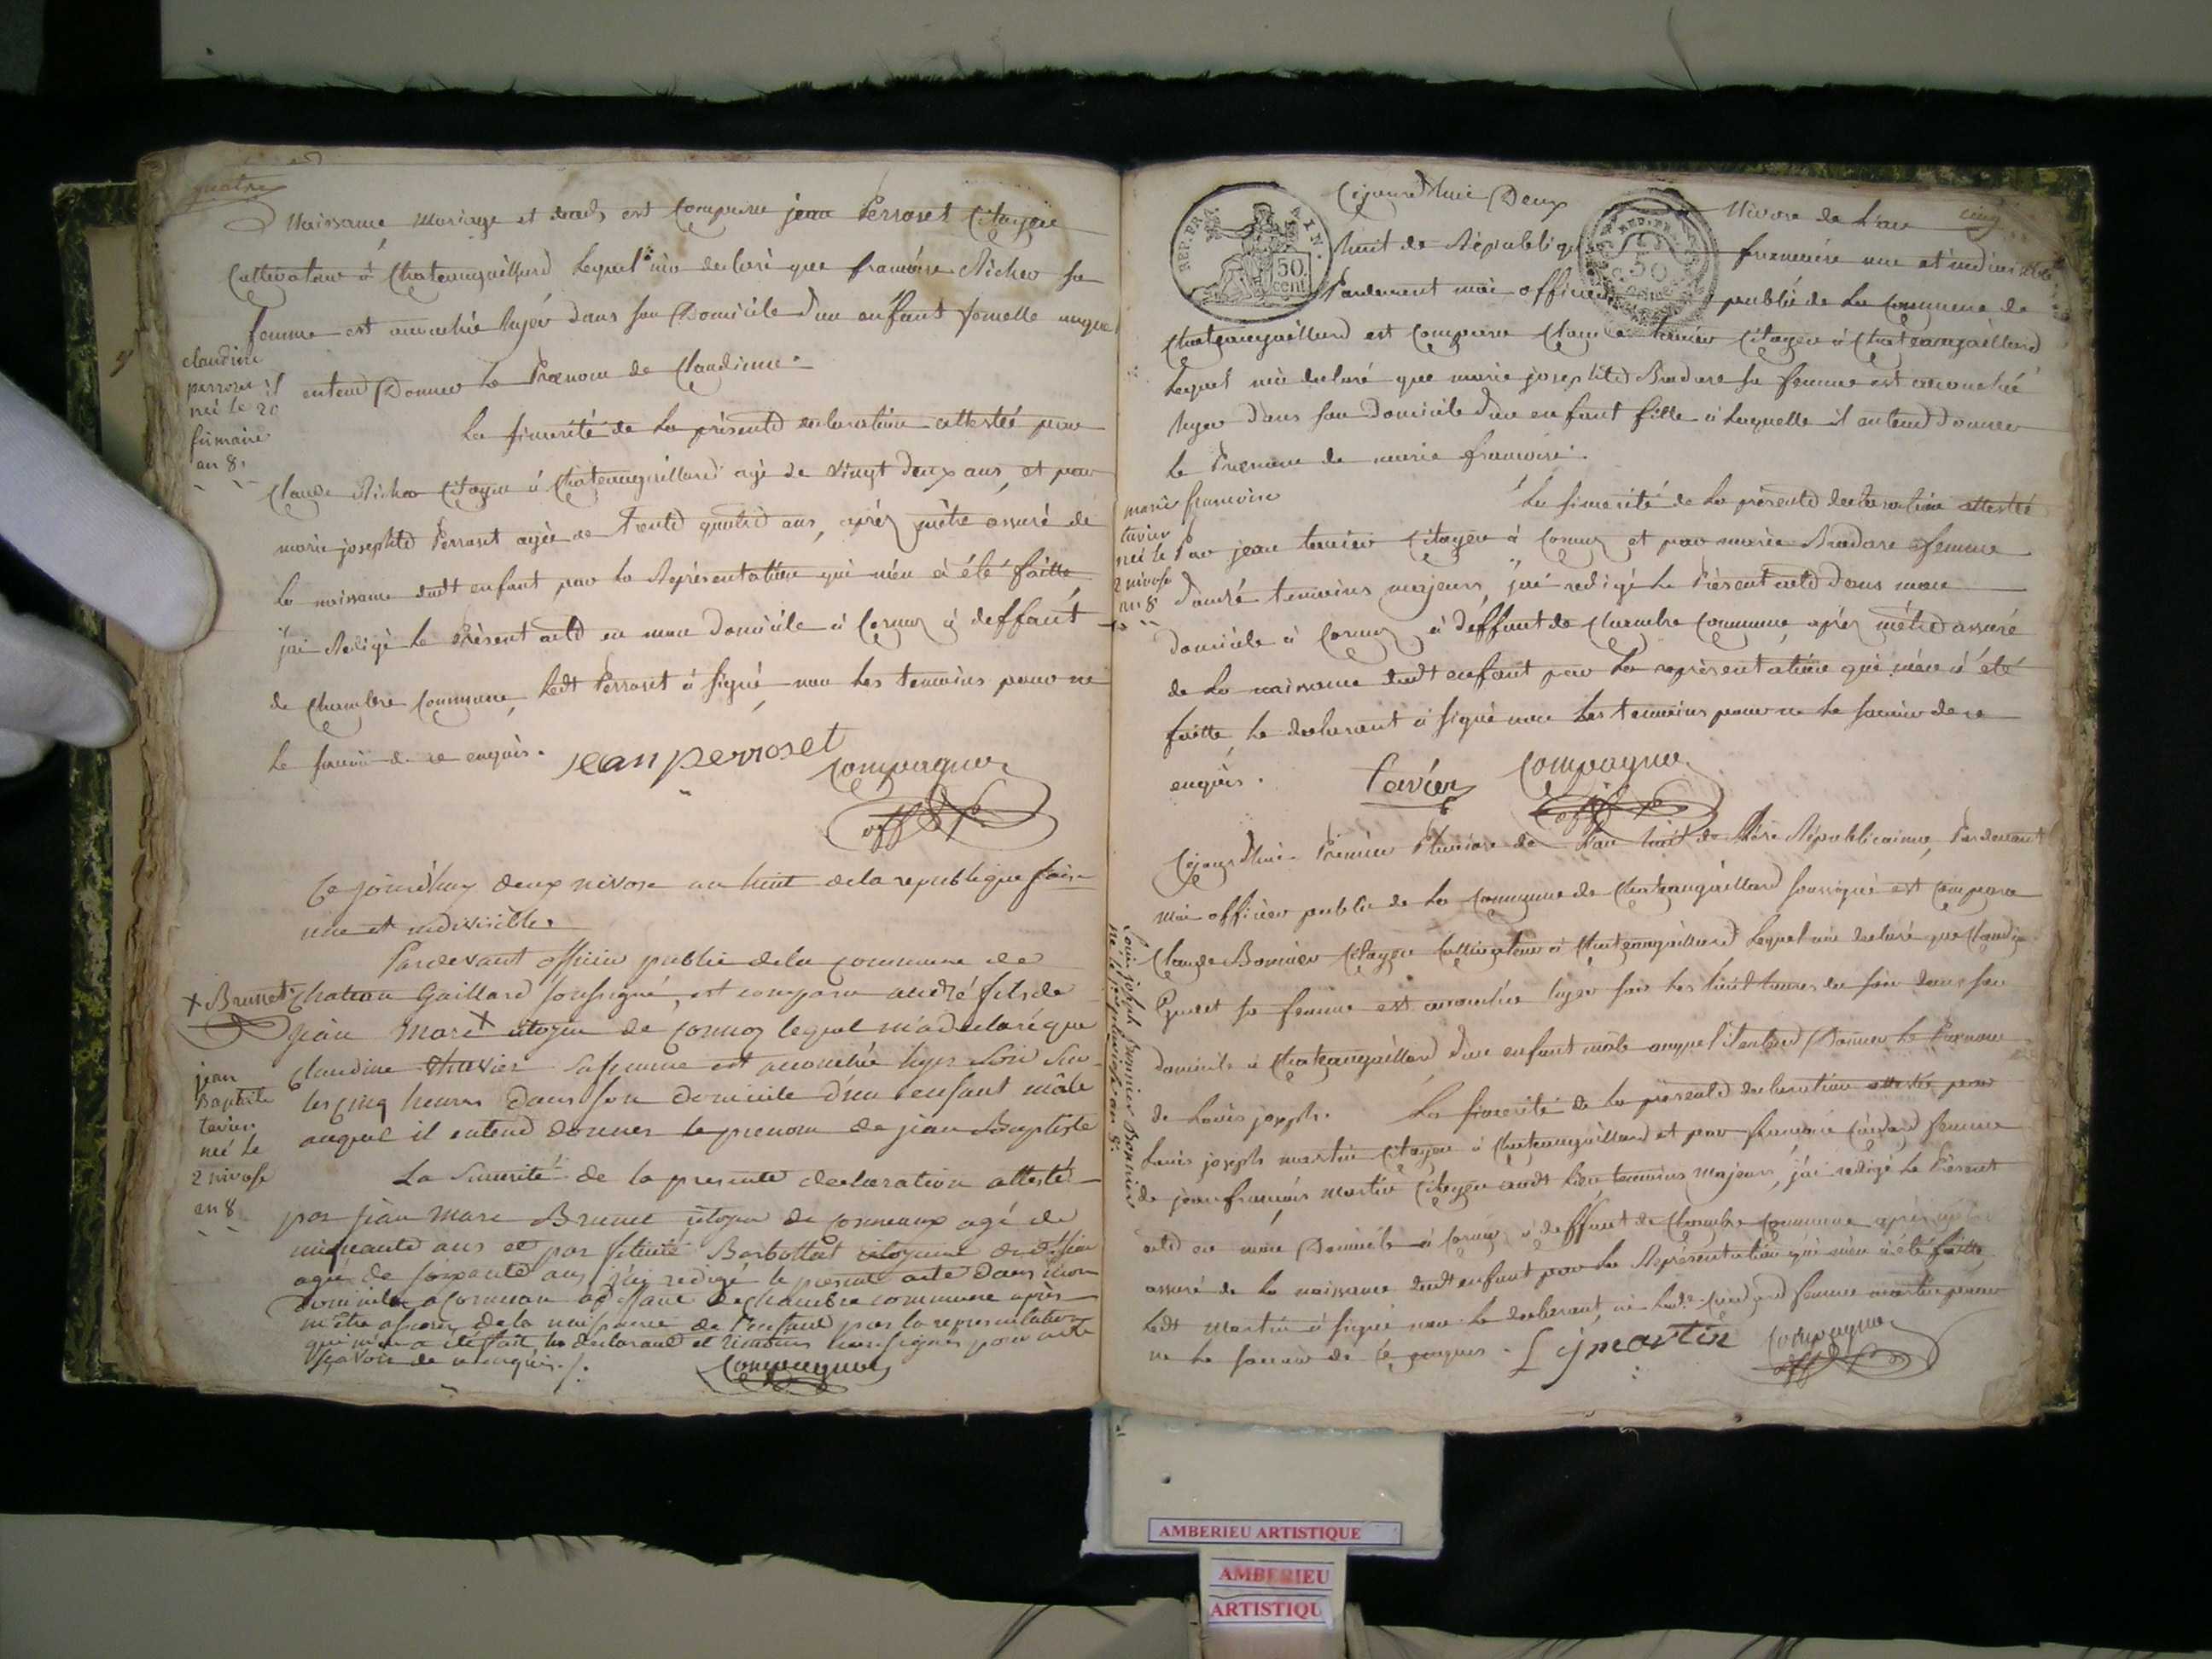 quatre
Naissance Mariage et decès est Comparu jean Perroset Citoyen
Cultivateur à Chateaugaillard Lequel m'a declaré que francoise Richer sa
femme est accouchée hyer dans son Domicile d'un enfant femelle auquel
entend Donner Le Prenom de Claudinne.
claudine
perroset
neé le 20
frimaire
an 8.
La sincerité de La présente declaration attestée par
Claude Richer Citoyen à Chateaugaillard agé de vingt deux ans, et par
marie josephte Perroset agée de Trente quatre ans, après m'être assuré de
la naissance dudt enfant par La Représentation qui m'en à été faitte
j'ai Redigé Le Présent acte en mon domicile à Cormoz à deffaut
de Chambre Commune, Ledt Perroset à signé non Les temoins pour ne
Le savoir de ce enquis.
jean perroset
Compagnon
off. P.
Ce jourdhuy deux nivose an huit de la republique fran.
une et indivisible.
Pardevant officier public de la commune de
Chateau Gaillard soussigné, est comparu andré fils de
jean Marc X citoyen de Cormoz lequel m'a declaré que
Claudine Sa femme est accouchée hyer Soir Sur
les cinq heures dans son domicile d'un enfant mâle
auquel il entend donner le prenom de jean Baptiste
X Brunet
jean
Baptiste
tavier
neé Le
2 nivose
an 8
La Sincerité de la presente declaration attesté
par jean Marc Brunet citoyen de Cormoux agé de
cinquante ans et par felicité Barbottat citoyenne
agée de soixante ans j'ai redigé le present acte dans mon
domicile a Cormoux a deffaut de chambre commune après
m'être assuré de la naissance de l'enfant par la representation
qui m'en a été fait les declarant et temoins pour ne
sçavoir de ce enquis ./.
Compagnon
cinq
Cejourd'hui Deux Nivose de L'an
huit de République francaise une et indivisible
Pardevant moi officier public de La Commune de
Chateaugaillard est Comparu Claude tavier Citoyen à Chateaugaillard
Lequel m'a declaré que marie josephte Bradare sa femme est accouchée
hyer dans son Domicile d'un enfant fille à Laquelle il entend donner
Le Prenom de marie francoise.
REP. FRA. AIN.
50.
cent
REP. FRA.
50
marie francoise
tavier
neé le
2 nivose
an 8
La sincerité de La présente declaration attestée
Par jean tavier Citoyen à Cormoz et par marie Bradare femme
d'andré temoins majeurs, j'ai redigé Le Présent acte dans mon
domicile à Cormoz à deffaut de Chambre Commune, après m'être assuré
de La naissance dudt enfant par La représentation qui m'en à été
faitte, Le declarant à signé non Les temoins pour ne Le savoir de ce
enquis.
tavier
Compagnon
off. P.
Cejourd'hui Premier Pluviose de L'an huit de L'ére Républicainne, Pardevant
moi officier public de La Commune de Chateaugaillard soussigné est Comparu
Claude Bonnier Citoyen Cultivateur à Chateaugaillard Lequel m'a declaré que Claudine
sa femme est accouchée hyer sur Les huit heures du soir dans son
domicile à Chateaugaillard d'un enfant mâle auquel il entend Donner Le Prenom
de Louis joseph. La sincerité de La présente declaration attestée par
Louis joseph martin Citoyen à Chateaugaillard et par francoise femme
de jean francois Martin Citoyen audt Lieu temoins Majeurs, j'ai redigé Le Présent
acte en mon Domicile à Cormoz à deffaut de Chambre Commune après m'être
assuré de La naissance dudt enfant par La Représentation qui m'en à été faitte
Ledt Martin à signé non Le declarant, ni Lade femme martin pour
ne Le savoir de ce enquis.
Louis joseph Bonnier
né le 1er pluviose an 8.
L j martin
Compagnon
off. P.
AMBERIEU ARTISTIQUE
AMBERIEU
ARTISTIQU